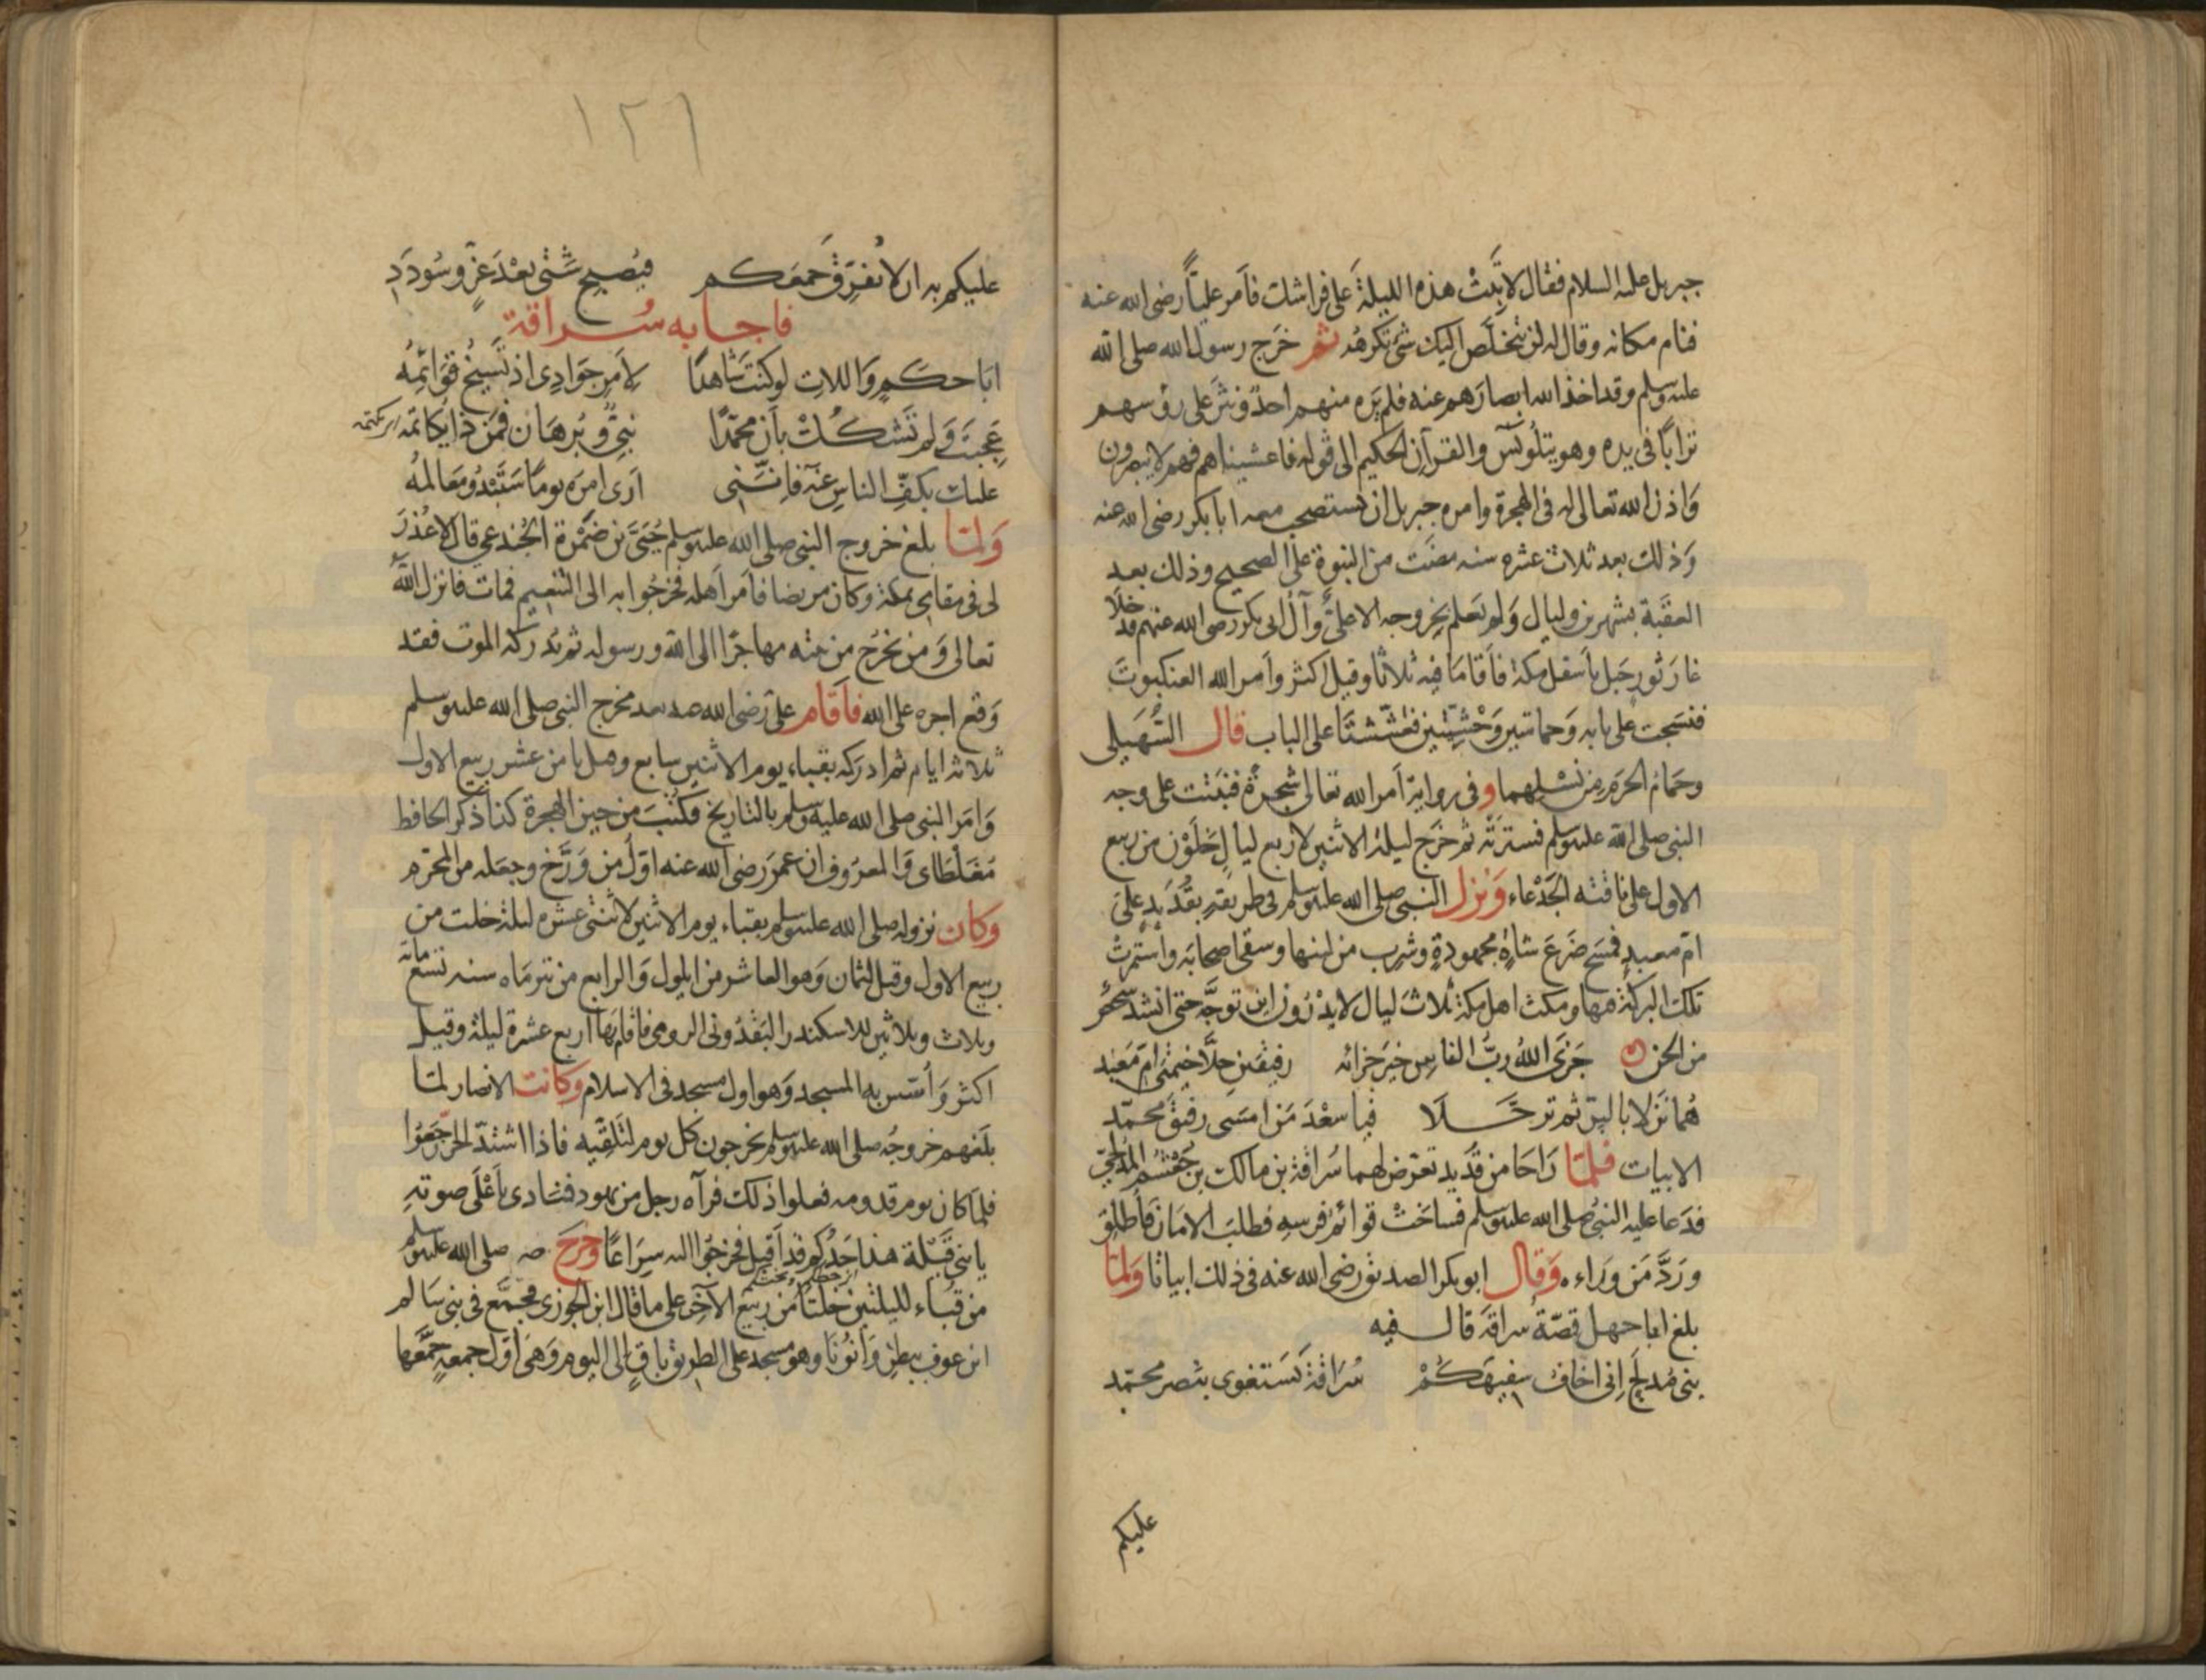 جبريل عليه السلام فقال لا تَبِتْ هذه الليلةَ على فراشك فأمر عليًّا رضى الله عنه
فنام مكانه وقال له لن يخلص اليك شئ تكرهُه ثم خرج رسول الله صلى الله
عليه وسلم وقد اخذ الله ابصارهم عنه فلم يَرَه منهم احدٌ ونثر على رؤسهم
ترابًا فى يده وهو يتلو يٓس والقرآن الحكيم الى قوله فاغشيناهم فهم لا يبصرون
وَاذن الله تعالى له فى الهجرة وامره جبريل ان يستصحب معه ابا بكر رضى الله عنه
وَذلك بعد ثلاث عشره سنه مضَت من النبوة على الصحيح وذلك بعد
العقَبة بشهرين وليال وَلم يَعلم بخروجه الا علىٌّ وآل ابى بكر رضى الله عنهم فدخلا
غار ثور جبل باسفل مكة فاَقامَا فيه ثلاثا وقيل اكثر واَمر الله العنكبوتَ
فنسَجت على بابه وَحمامتين وَحْشِيّتين فعَشّشتَا على الباب قال السُّهَيلى
وحمَام الحَرم من نَسْلِهما وفى رواية اَمر الله تعالى شجرةً فنبَتت على وجه
النبى صلى الله عليه وسلم فسترَتْه ثم خرَج ليلة الاثنين لاربع ليالٍ خلَوْن من ربيع
الاول على ناقته الجَدْعاء وَنزل النبى صلى الله عليه وسلم فى طريقه بقُدَيدٍ على
امّ معبدٍ فمسَح ضَرعَ شاةٍ مجهودةٍ وشرب من لبنها وسقى اصحابَه واستمرتْ
تلك البركة فيها ومكث اهل مكة ثلاثَ ليال لا يدْرُون اين توجَّه حتى انشد شعر
من الجن جَزَى اللهُ ربُّ الناسِ خيرَ جزائه رفيقَينِ حلّا خيمَتَى امّ مَعْبَد
هُما نَزَلا بالبِرّ ثم ترحّلَا فيا سعْدَ مَن امسَى رفيقَ محمّد
الابيات فلمّا رَاحَا من قُدَيد تعرّض لهما سُراقة بن مالك بن جُعْشُم المُدلجىّ
فدَعا عليه النبىُّ صلى الله عليه وسلم فساخَتْ قوائم فرسِه فطلبَ الامَان فَأُطلق
ورَدَّ مَن وَراءه وَقال ابو بكر الصديق رضى الله عنه فى ذلك ابياتا وَلمّا
بلغ ابا جهل قصّةُ سراقة قال فيه
بنى مُدلجَ اِنى اخاف سفيهَكُمْ سُرَاقةَ يَستغوى بنَصر محمّد
عليكم
١٢٦
عليكم به ان لا يُفرّقَ جمعكم فيُصبِح شَتّى بَعْدَ عزٍّ وسُودَدِ
فاجابه سُراقة
ابَا حكمٍ وَاللاتِ لو كنتَ شاهدًا لِاَمرِ جَوَادِى اذ تَسِيخُ قوَائِمُه
عَجِبتَ وَلم تَشكُكْ بأن محمّدًا نبِىٌّ وبُرهَان فمَن ذا يُكاتمُه
عليك بكفّ الناسِ عنه فاِنّنى اَرَى امرَه يومًا سَتَبْدُو مَعَالمُه
وَلمّا بلغ خروج النبى صلى الله عليه وسلم جُنْدَبَ بن ضَمْرة الجُندعى قال لا عُذرَ
لى فى مقامى بمكة وكان مريضا فامَر اَهله فخرجُوا به الى التنعيم فمات فانزل اللهُ
تعالى وَمن يخرُج من بيته مهاجرًا الى الله ورسوله ثم يُدركه الموت فقد
وَقع اجره على الله فاَقام علىّ رَضى الله عنه بعد مخرج النبى صلى الله عليه وسلم
ثلاثة ايام ثم ادركه بقباء يوم الاثنين سابع وقيل ثامن عشر ربيع الاول
وَامَر النبى صلى الله عليه وسلم بالتاريخ فكُتِبَ من حين الهجرة كذا ذكر الحافظ
مُغَلْطَاى وَالمعرُوف ان عمَر رَضى الله عنه اوّلُ من وَرَّخ وجعَله من المحرّم
وَكان نزوله صلى الله عليه وسلم بقباء يوم الاثنين لاثنتى عشره ليلة خلت من
ربيع الاول وقيل لثمان وَهو العاشر من ايلول وَالرابع من تير مَاه سنه تسعمائه
وثلاث وثلاثين للاسكندر الرومى فاقام بها اربع عشرة ليلة وقيل
اكثر وَ أَسّس به المسجد وَهو اول مسجد فى الاسلام وكانت الانصار لمّا
بلغهم خروجُه صلى الله عليه وسلم يخرجون كل يوم لتلقّيه فاذا اشتدّ الحرّ رجَعُوا
فلمّا كان يوم قدومه فعلوا ذلك فرآه رجل من يهود فنادى باَعْلَى صوته
يا بنى قَيْلة هذا جَدُّكم قد اَقبل فخرجُوا اليه سِرَاعًا وَخرجَ صلى الله عليه وسلم
من قُبَاء لليلتين خلتَا من ربيع الآخر على ما قال ابن الجوزى فجمّع فى بنى سَالم
ابن عوف ببطن وَانُونَا وهو مسجد على الطريق باقٍ الى اليوم وَهى اوّل جمعةٍ جمَّعها